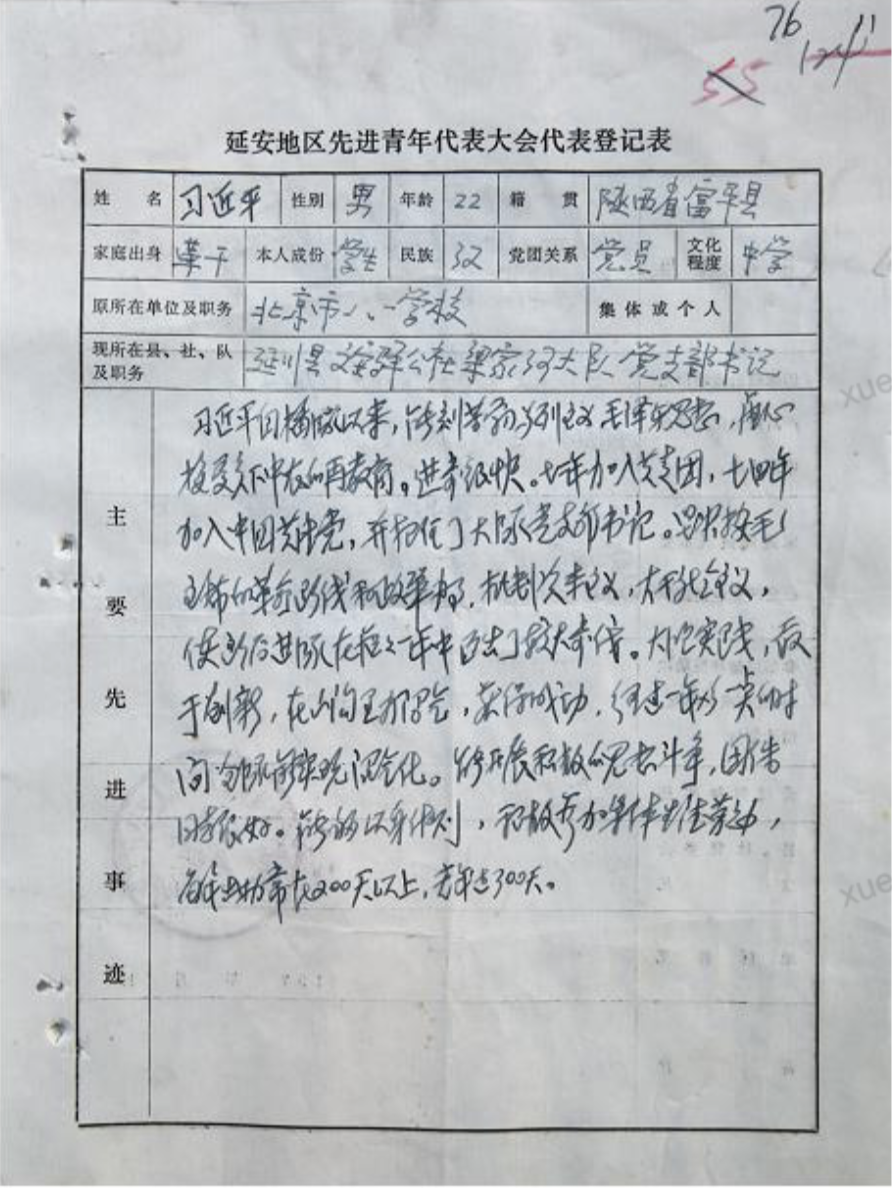 76
11
55
124
延安地区先进青年代表大会代表登记表
姓名 习近平 性别 男 年龄 22 籍贯 陕西省富平县
家庭出身 革干 本人成份 学生 民族 汉 党团关系 党员 文化程度 中学
原所在单位及职务 北京市八一学校 集体或个人
现所在县、社、队及职务 延川县文安驿公社梁家河大队党支部书记
主要先进事迹
习近平同插队以来,能刻苦学习马列主义毛泽东思想,虚心
接受贫下中农的再教育。进步很快。七年加入共青团,七四年
加入中国共产党,并担任了大队党支部书记。坚决按毛
主席的革命路线和政策办事,批判资本主义,大干社会主义,
使后进队在短短一年中迈出了较大步伐。大胆实践,敢
于创新,在山沟里办沼气,获得成功,经过一年多一点的时
间全队实现沼气化。能开展积极的思想斗争,团结
同志很好。能够以身作则,积极参加集体生产劳动,
每年出勤常在200天以上,去年达300天。
xue
xue